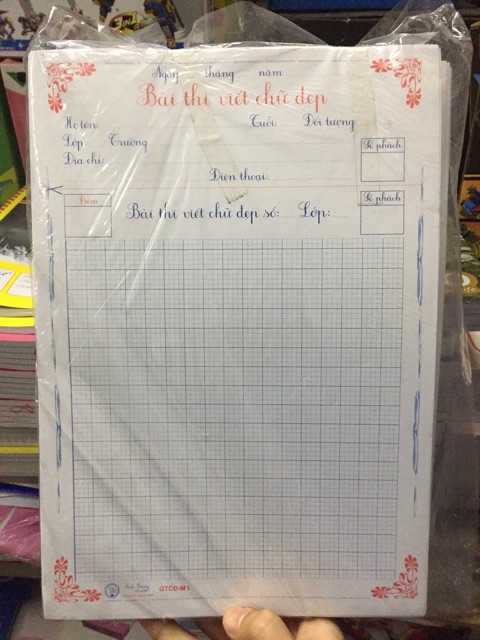 Ngày tháng năm
Bài thi viết chữ đẹp
Họ tên: Tuổi: Đối tượng:
Lớp: Trường
Địa chỉ:
Số phách
Điện thoại:
Điểm
Số phách
Bài thi viết chữ đẹp số: Lớp:
GTCĐ-M1